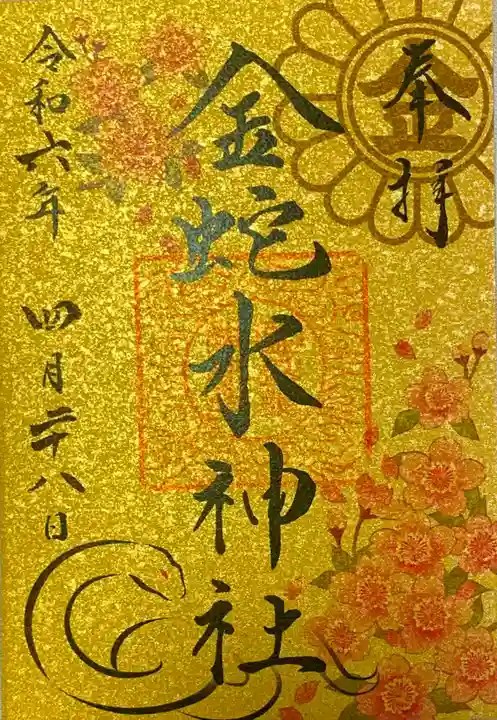 奉拝
金
金蛇水神社
令和六年
四月二十八日